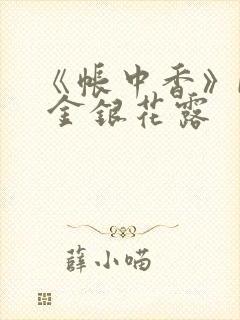 《帐中香》
金银花露
薛小喵